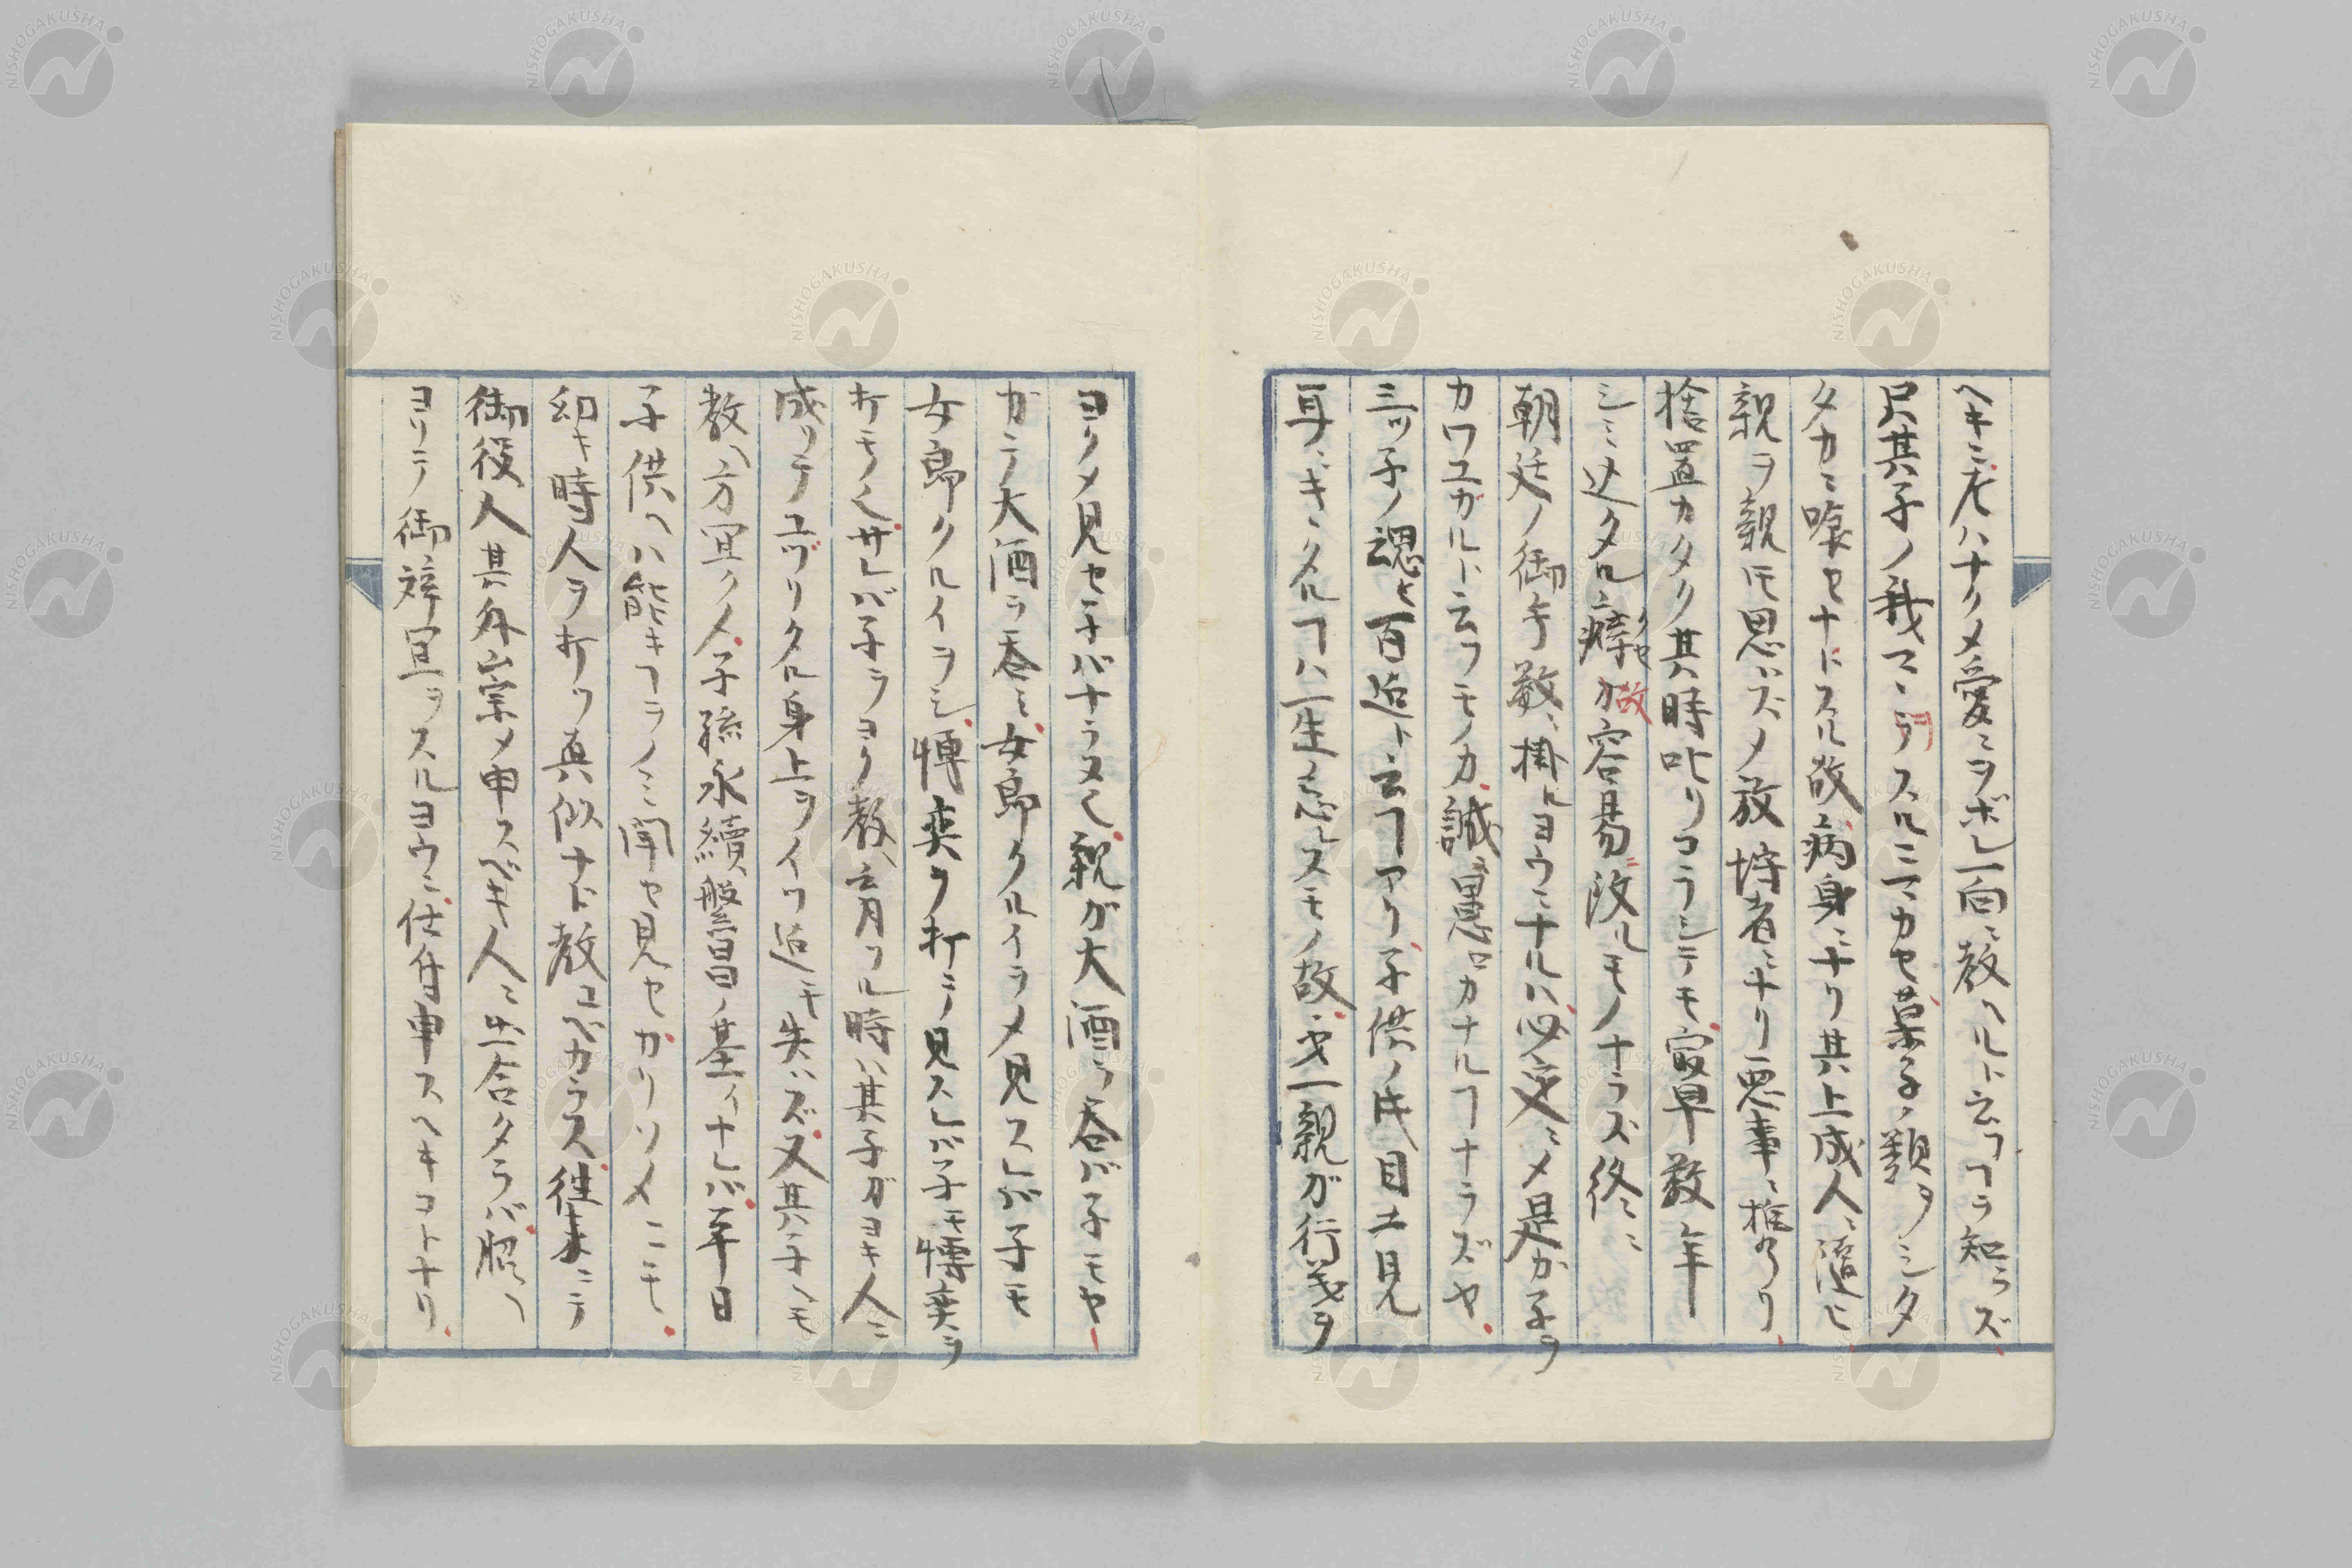 ヘキニ尤ハナクメ愛ニヲボレ一向ニ教ヘルト云フヿヲ知ラズ
只其子ノ我マヽヲスルニマカセ菓子ノ類ヲシタ
タカニ喰セナドスル故病身ニナリ其上成人ニ随ヒ
親ヲ親トモ思ハズメ放埒者ニナリ悪事ニ推ウツリ
捨置カタク其時叱リコラシテモ最早数年
シミ込タル癖故容易ニ改ルモノナラズ終ニ
朝廷ノ御手数ニ掛ルヨウニナルハ必定ニメ是カ子ヲ
カワユガルト云フモノカ誠ニ愚カナルヿナラズヤ
三ツ子ノ魂ヒ百迄ト云フヿアリ子供ノ時目ニ見
耳ニキヽタルヿハ一生ノ忘レヌモノ故ニ親ガ行義ヲ
ヨクメ見セ子バナラヌ也親ガ大酒ヲ呑バ子モヤ
ガテ大酒ヲ呑ミ女郎クルイヲメ見スレバ子モ
女郎クルイヲシ博奕ヲ打テ見スレバ子モ博奕ヲ
打モノ也サレバ子ヲヨク教ヘ育ツル時ハ其子ガヨキ人ニ
成リテユヅリタル身上ヲイツ迄モ失ハズ又其子ヘモ
教ヘ方宜クメ子孫永続繁昌ノ基イナレバ平日
子供ヘハ能キヿヲノミ聞セ見セカリソメニモ
幼キ時人ヲ打ツ真似ナド教ユベカラス往来ニテ
御役人其外崇メ申スベキ人ニ出合タラバ
ヨリテ御辞宜ヲスルヨウニ仕付申スヘキコトナリ